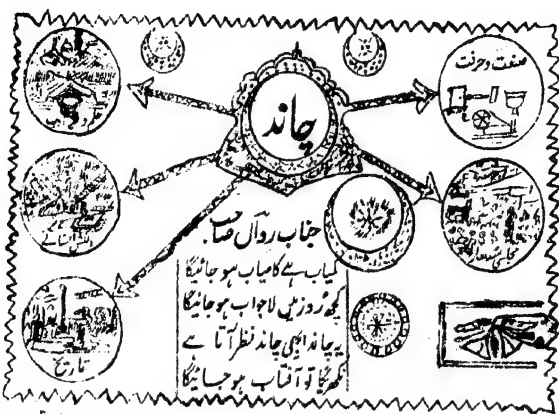 صنعت و حرفت
چاند
جناب رواں صاحب
کیاب ہے کامیاب ہو جائیگا
کچھ روز میں لاجواب ہو جائیگا
یہ چاند ابھی چاند نظر آتا ہے
نکھریگا تو آفتاب ہو جائیگا
تاریخ